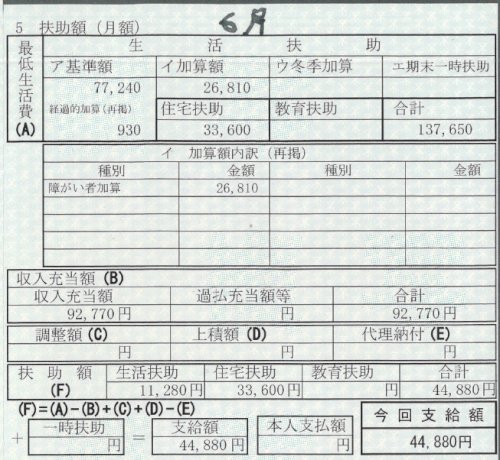 6月
5 扶助額（月額）
最低生活費(A)
生活扶助
ア基準額 イ加算額 ウ冬季加算 エ期末一時扶助
77,240 26,810
経過的加算(再掲) 住宅扶助 教育扶助 合計
930 33,600 137,650
イ 加算額内訳（再掲）
種別 金額 種別 金額
障がい者加算 26,810
収入充当額(B)
収入充当額 過払充当額等 合計
92,770円 円 92,770円
調整額(C) 上積額(D) 代理納付(E)
円 円 円
扶助額(F) 生活扶助 住宅扶助 教育扶助 合計
11,280円 33,600円 円 44,880円
(F)=(A)-(B)+(C)+(D)-(E)
+ 一時扶助 = 支給額 本人支払額 今回支給額
円 44,880円 円 44,880円